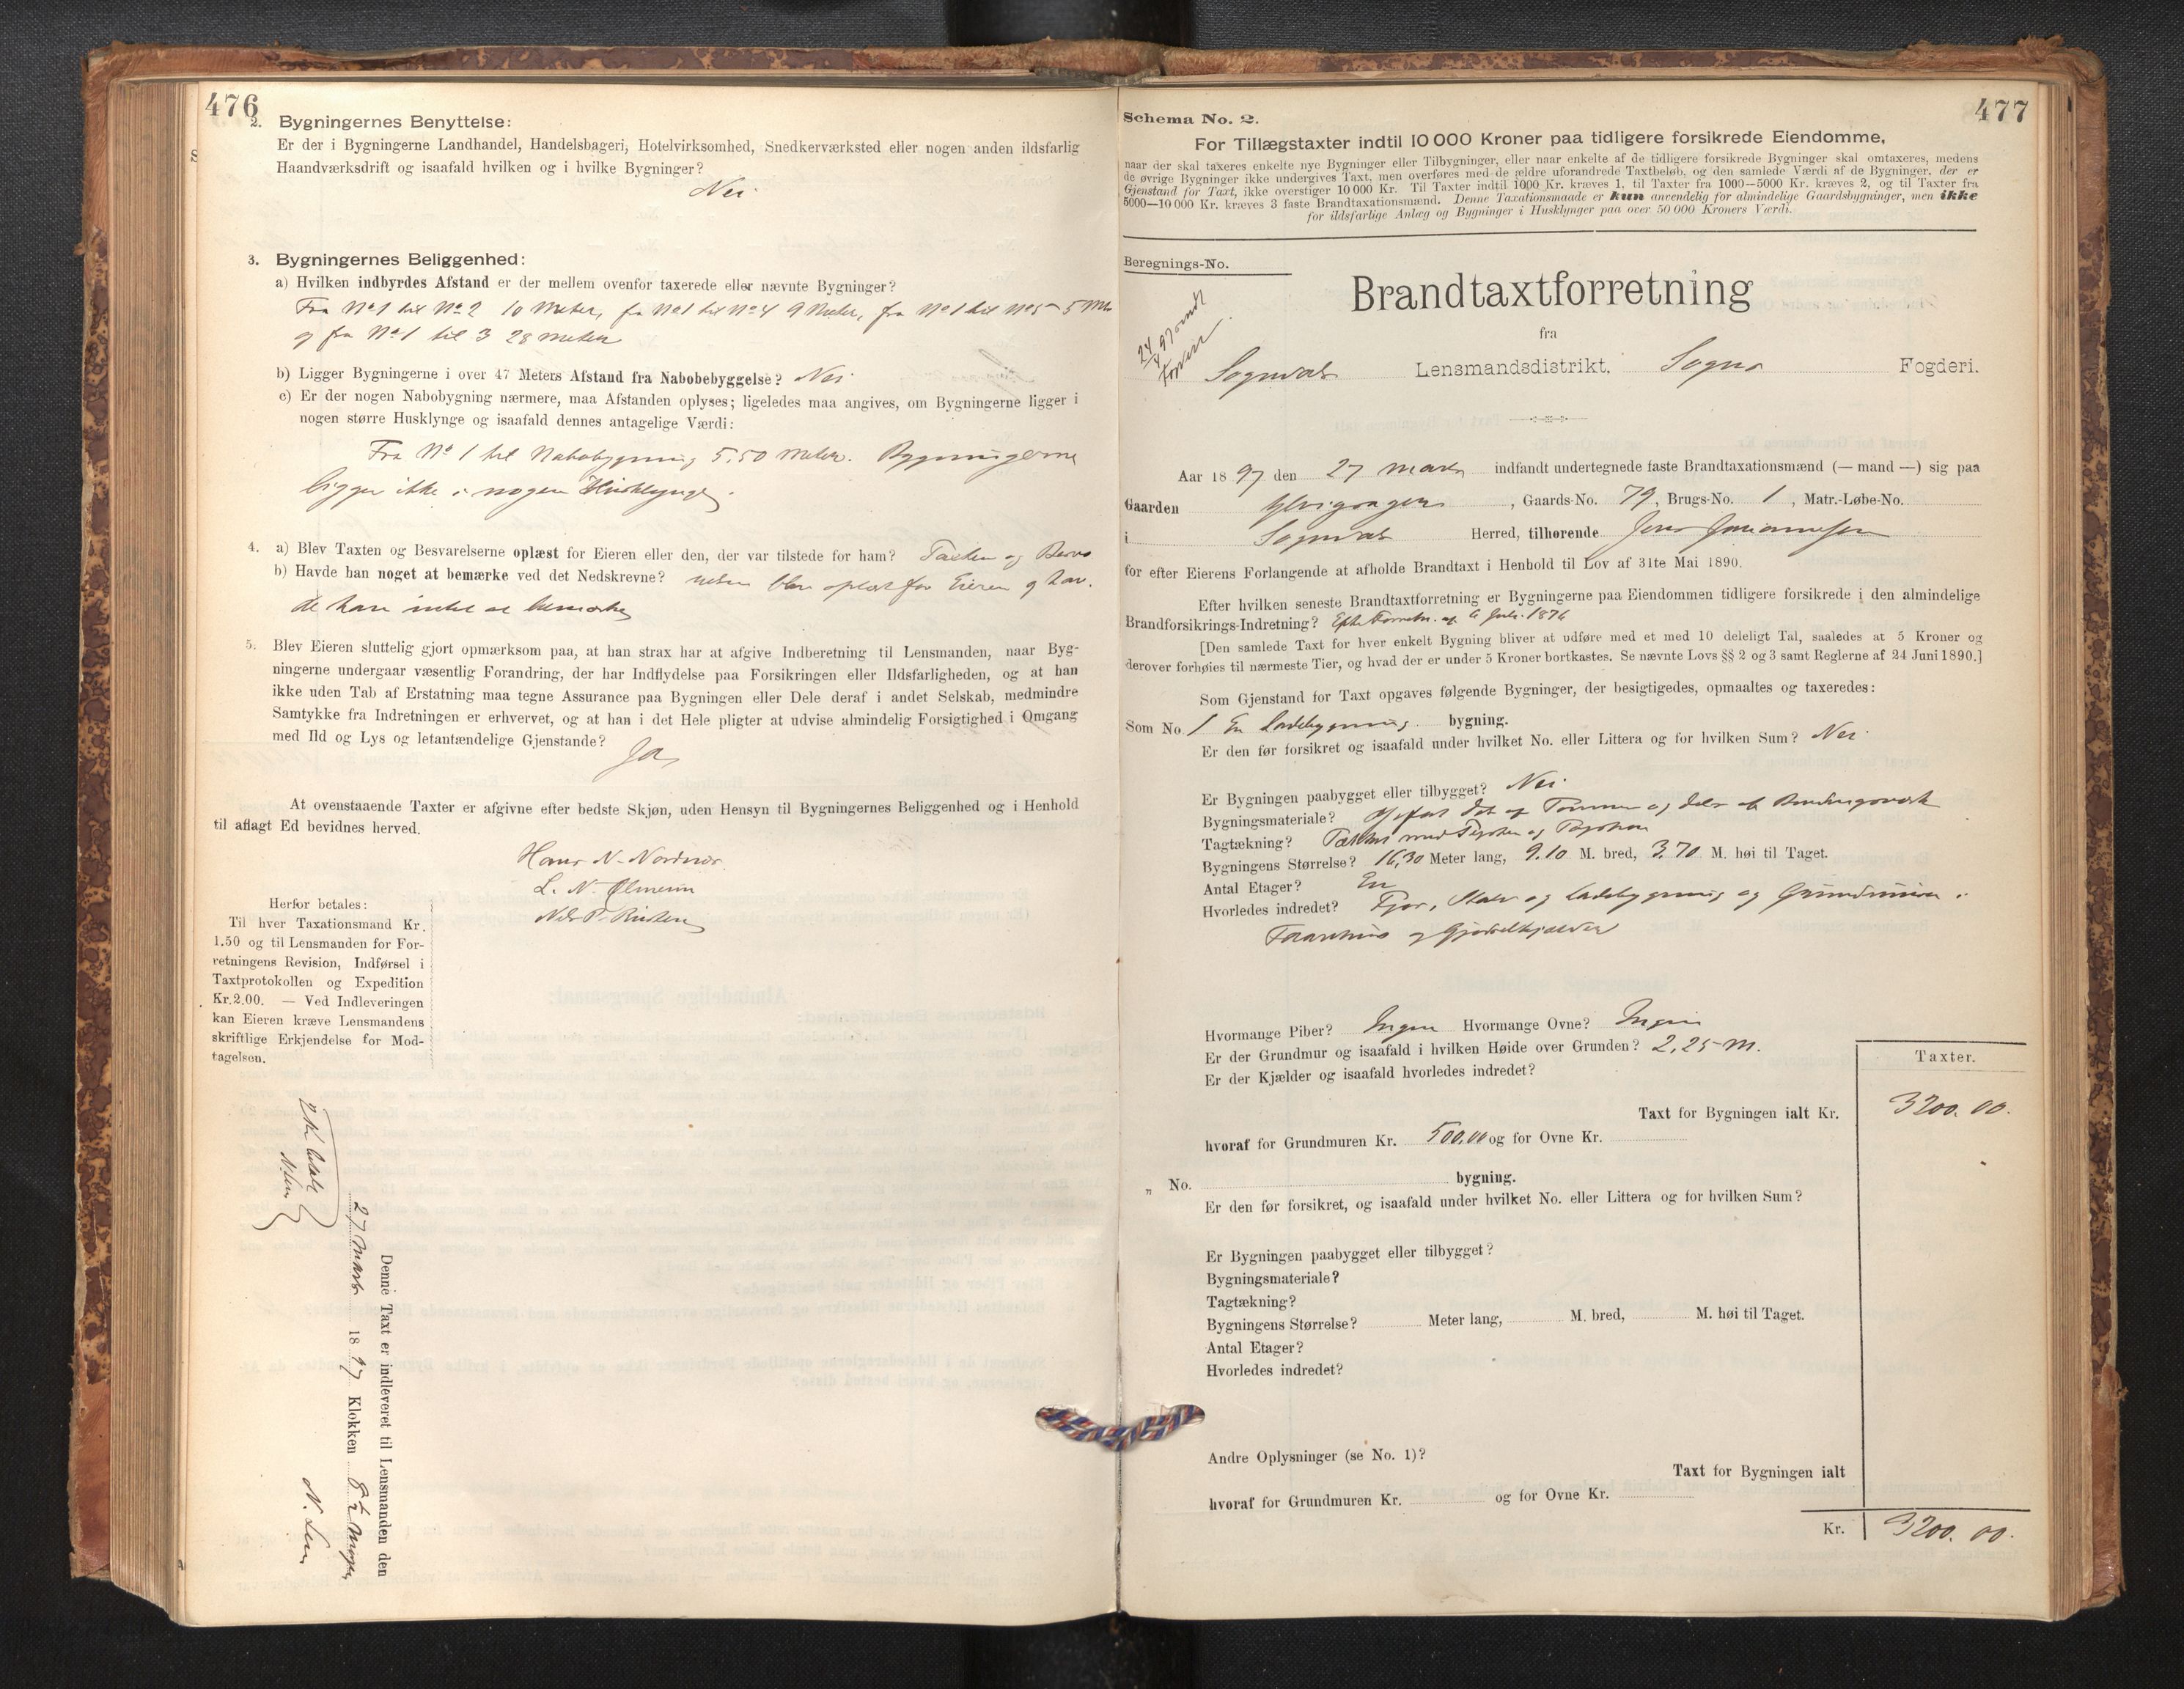 476
2. Bygningernes Benyttelse:
Er der i Bygningerne Landhandel, Handelsbageri, Hotelvirksomhed, Snedkerværksted eller nogen anden ildsfarlig
Haandværksdrift og isaafald hvilken og i hvilke Bygninger?
Nei
3. Bygningernes Beliggenhed:
a) Hvilken indbyrdes Afstand er der mellem ovenfor taxerede eller nævnte Bygninger?
Fra No 1 til No 2 10 Meter, fra No 1 til No 4 9 Meter, fra No 1 til No 5 - 5 Mtr
og fra No 1 til 3 28 meter
b) Ligger Bygningerne i over 47 Meters Afstand fra Nabobebyggelse? Nei
c) Er der nogen Nabobygning nærmere, maa Afstanden oplyses; ligeledes maa angives, om Bygningerne ligger i
nogen større Husklynge og isaafald dennes antagelige Værdi:
Fra No 1 til Nabobygning 5.50 Meter. Bygningerne
ligger ikke i nogen Husklynge.
4. a) Blev Taxten og Besvarelserne oplæst for Eieren eller den, der var tilstede for ham? Taxten og Besva
b) Havde han noget at bemærke ved det Nedskrevne? relsen blev oplæst for Eieren og hav.
de han intet at bemærke
5. Blev Eieren sluttelig gjort opmærksom paa, at han strax har at afgive Indberetning til Lensmanden, naar Byg-
ningerne undergaar væsentlig Forandring, der har Indflydelse paa Forsikringen eller Ildsfarligheden, og at han
ikke uden Tab af Erstatning maa tegne Assurance paa Bygningen eller Dele deraf i andet Selskab, medmindre
Samtykke fra Indretningen er erhvervet, og at han i det Hele pligter at udvise almindelig Forsigtighed i Omgang
med Ild og Lys og letantændelige Gjenstande?
Ja
At ovenstaaende Taxter er afgivne efter bedste Skjøn, uden Hensyn til Bygningernes Beliggenhed og i Henhold
til aflagt Ed bevidnes herved.
Hans N. Nordnæs
L. N.
Nels P.
Herfor betales:
Til hver Taxationsmand Kr.
1.50 og til Lensmanden for For-
retningens Revision, Indførsel i
Taxtprotokollen og Expedition
Kr. 2.00. — Ved Indleveringen
kan Eieren kræve Lensmandens
skriftlige Erkjendelse for Mod-
tagelsen.
2 Kr betalt
Denne Taxt er indleveret til Lensmanden den
27 Marts 1897 Klokken 8½ Morgen
477
Schema No. 2.
For Tillægstaxter indtil 10 000 Kroner paa tidligere forsikrede Eiendomme,
naar der skal taxeres enkelte nye Bygninger eller Tilbygninger, eller naar enkelte af de tidligere forsikrede Bygninger skal omtaxeres, medens
de øvrige Bygninger ikke undergives Taxt, men overføres med de ældre uforandrede Taxtbeløb, og den samlede Værdi af de Bygninger, der er
Gjenstand for Taxt, ikke overstiger 10 000 Kr. Til Taxter indtil 1000 Kr. kræves 1, til Taxter fra 1000—5000 Kr. kræves 2, og til Taxter fra
5000—10 000 Kr. kræves 3 faste Brandtaxationsmænd. Denne Taxationsmaade er kun anvendelig for almindelige Gaardsbygninger, men ikke
for ildsfarlige Anlæg og Bygninger i Husklynger paa over 50 000 Kroners Værdi.
Beregnings-No.
24/4 97
Brandtaxtforretning
fra
Sogndals Lensmandsdistrikt, Sogns Fogderi.
Aar 1897 den 27 Marts indfandt undertegnede faste Brandtaxationsmænd (— mand —) sig paa
Gaarden , Gaards-No. 79, Brugs-No. 1, Matr.-Løbe-No.
i Sogndals Herred, tilhørende Jens Johannesen
for efter Eierens Forlangende at afholde Brandtaxt i Henhold til Lov af 31te Mai 1890.
Efter hvilken seneste Brandtaxtforretning er Bygningerne paa Eiendommen tidligere forsikrede i den almindelige
Brandforsikrings-Indretning? Efter Forretn. af 6 Juli 1876
[Den samlede Taxt for hver enkelt Bygning bliver at udføre med et med 10 deleligt Tal, saaledes at 5 Kroner og
derover forhøies til nærmeste Tier, og hvad der er under 5 Kroner bortkastes. Se nævnte Lovs §§ 2 og 3 samt Reglerne af 24 Juni 1890.]
Som Gjenstand for Taxt opgaves følgende Bygninger, der besigtigedes, opmaaltes og taxeredes:
Som No 1 En Ladebygning bygning.
Er den før forsikret og isaafald under hvilket No. eller Littera og for hvilken Sum? Nei
Er Bygningen paabygget eller tilbygget? Nei
Bygningsmateriale? Opført dels af Tømmer og dels af Bindingsværk
Tagtækning? Tækket med
Bygningens Størrelse? 16,30 Meter lang, 9.10 M. bred, 3.70 M. høi til Taget.
Antal Etager? En
Hvorledes indredet? Fjøs, Stald og Ladebygning og Grundmuren i
og Gjødselkjælder
Hvormange Piber? Ingen Hvormange Ovne? Ingen
Er der Grundmur og isaafald i hvilken Høide over Grunden? 2,25 M.
Er der Kjælder og isaafald hvorledes indredet?
Taxter.
Taxt for Bygningen ialt Kr. 3200.00.
hvoraf for Grundmuren Kr. 500,00 og for Ovne Kr.
„ No. bygning.
Er den før forsikret, og isaafald under hvilket No. eller Littera og for hvilken Sum?
Er Bygningen paabygget eller tilbygget?
Bygningsmateriale?
Tagtækning?
Bygningens Størrelse? Meter lang, M. bred, M. høi til Taget.
Antal Etager?
Hvorledes indredet?
Andre Oplysninger (se No. 1)?
Taxt for Bygningen ialt
hvoraf for Grundmuren Kr. og for Ovne Kr.
Kr. 3200.00.